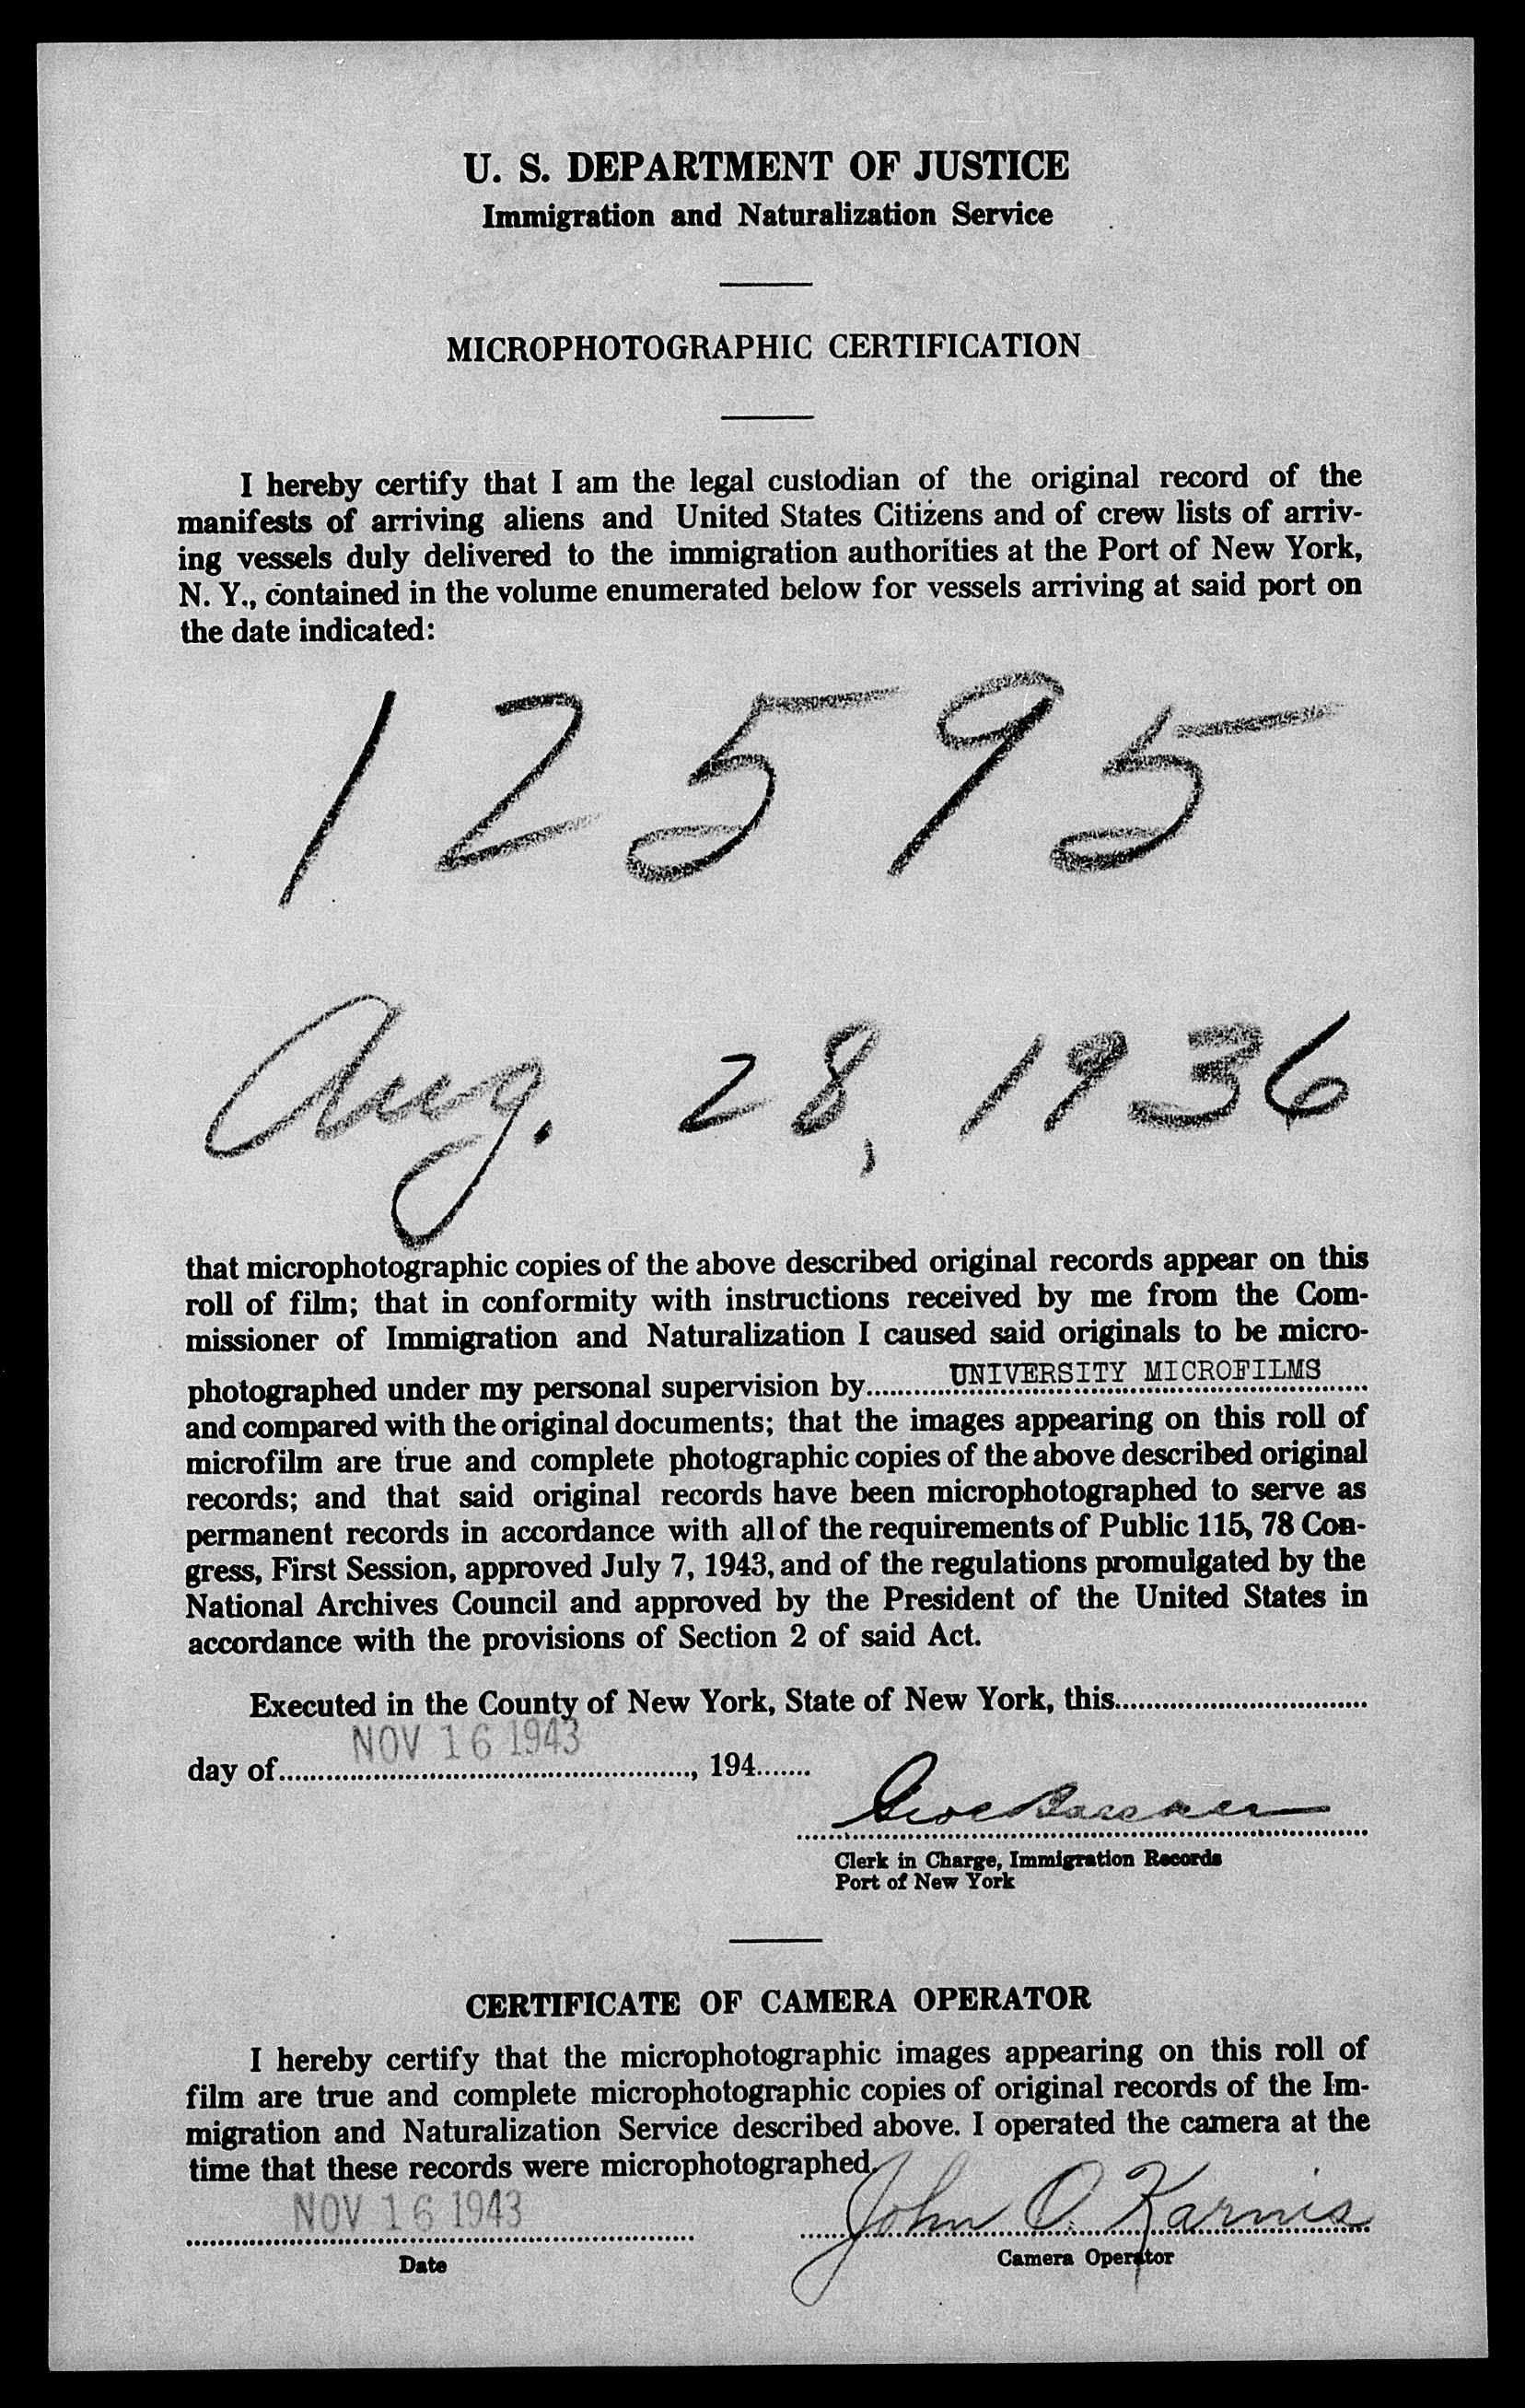 U. S. DEPARTMENT OF JUSTICE
Immigration and Naturalization Service
MICROPHOTOGRAPHIC CERTIFICATION
I hereby certify that I am the legal custodian of the original record of the
manifests of arriving aliens and United States Citizens and of crew lists of arriv-
ing vessels duly delivered to the immigration authorities at the Port of New York,
N. Y., contained in the volume enumerated below for vessels arriving at said port on
the date indicated:
12595
Aug. 28, 1936
that microphotographic copies of the above described original records appear on this
roll of film; that in conformity with instructions received by me from the Com-
missioner of Immigration and Naturalization I caused said originals to be micro-
photographed under my personal supervision by UNIVERSITY MICROFILMS
and compared with the original documents; that the images appearing on this roll of
microfilm are true and complete photographic copies of the above described original
records; and that said original records have been microphotographed to serve as
permanent records in accordance with all of the requirements of Public 115, 78 Con-
gress, First Session, approved July 7, 1943, and of the regulations promulgated by the
National Archives Council and approved by the President of the United States in
accordance with the provisions of Section 2 of said Act.
Executed in the County of New York, State of New York, this
NOV 16 1943
day of, 194
Clerk in Charge, Immigration Records
Port of New York
CERTIFICATE OF CAMERA OPERATOR
I hereby certify that the microphotographic images appearing on this roll of
film are true and complete microphotographic copies of original records of the Im-
migration and Naturalization Service described above. I operated the camera at the
time that these records were microphotographed.
NOV 16 1943 John O. Karnis
Date Camera Operator